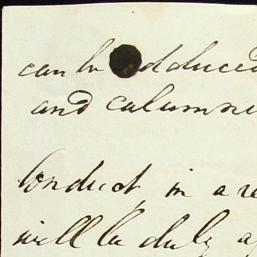 can be adduced
and calumni
Conduct, in a re
will be duly a